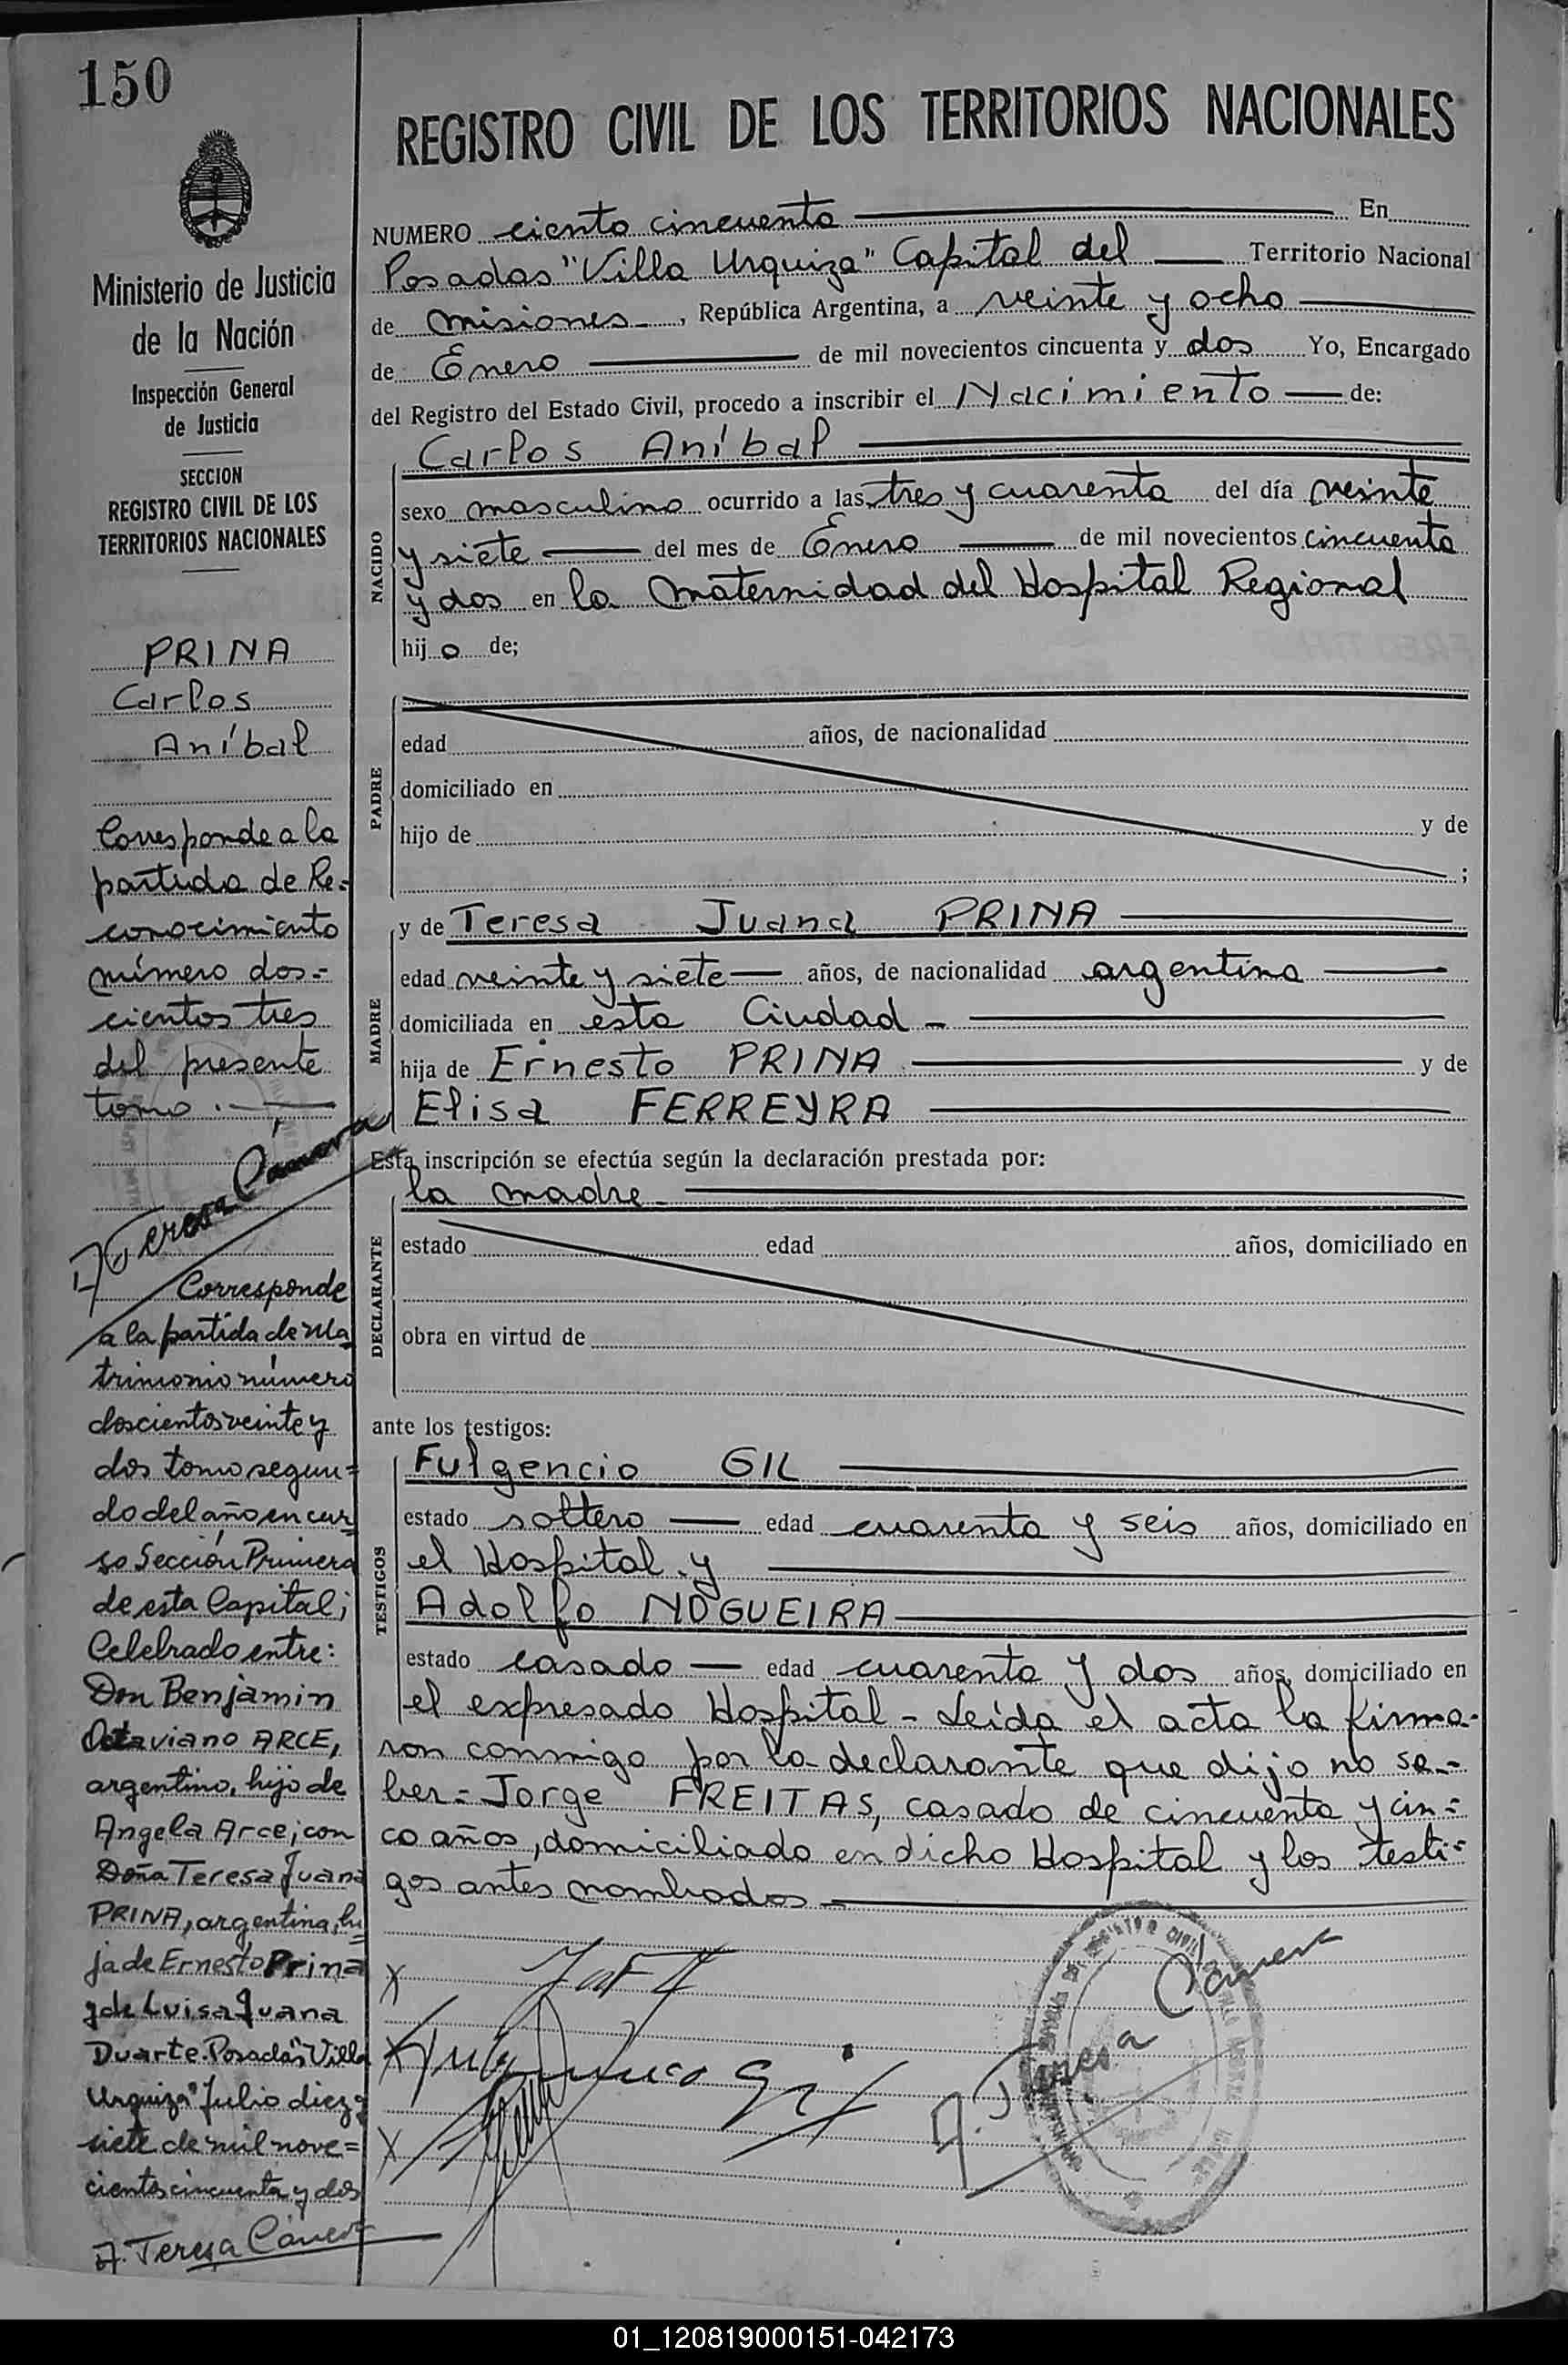 150
Ministerio de Justicia
de la Nación
Inspección General
de Justicia
SECCION
REGISTRO CIVIL DE LOS
TERRITORIOS NACIONALES
PRINA
Carlos
Aníbal
Corresponde a la
partida de Re-
conocimiento
número dos-
cientos tres
del presente
tomo.
A. Teresa Cámera
Corresponde
a la partida de Ma
trimonio número
doscientos veinte y
dos tomo segun=
do del año en cur
so Sección Primera
de esta Capital;
Celebrado entre:
Don Benjamin
Octaviano ARCE,
argentino, hijo de
Angela Arce; con
Doña Teresa Juana
PRINA, argentina, hi
ja de Ernesto Prina
y de Luisa Juana
Duarte. Posadas "Villa
Urquiza" Julio diez y
siete de mil nove=
cientos cincuenta y dos
A. Teresa Cámera
REGISTRO CIVIL DE LOS TERRITORIOS NACIONALES
NUMERO ciento cincuenta En
Posadas "Villa Urquiza" Capital del Territorio Nacional
de Misiones, República Argentina, a veinte y ocho
de Enero de mil novecientos cincuenta y dos Yo, Encargado
del Registro del Estado Civil, procedo a inscribir el Nacimiento de:
NACIDO
Carlos Aníbal
sexo masculino ocurrido a las tres y cuarenta del día veinte
y siete del mes de Enero de mil novecientos cincuenta
y dos en la Maternidad del Hospital Regional
hijo de;
PADRE
edad años, de nacionalidad
domiciliado en
hijo de y de
;
MADRE
y de Teresa Juana PRINA
edad veinte y siete años, de nacionalidad argentina
domiciliada en esta Ciudad -
hija de Ernesto PRINA y de
Elisa FERREYRA
Esta inscripción se efectúa según la declaración prestada por:
DECLARANTE
la madre
estado edad años, domiciliado en
obra en virtud de
ante los testigos:
TESTIGOS
Fulgencio GIL
estado soltero edad cuarenta y seis años, domiciliado en
el Hospital y
Adolfo NOGUEIRA
estado casado edad cuarenta y dos años, domiciliado en
el expresado Hospital - Leída el acta la firma-
ron conmigo por la declarante que dijo no sa-
ber = Jorge FREITAS, casado de cincuenta y cin=
co años, domiciliado en dicho Hospital y los testi=
gos antes nombrados
X
X Fulgencio Gil
X
A. Teresa Cámera
01_120819000151-042173